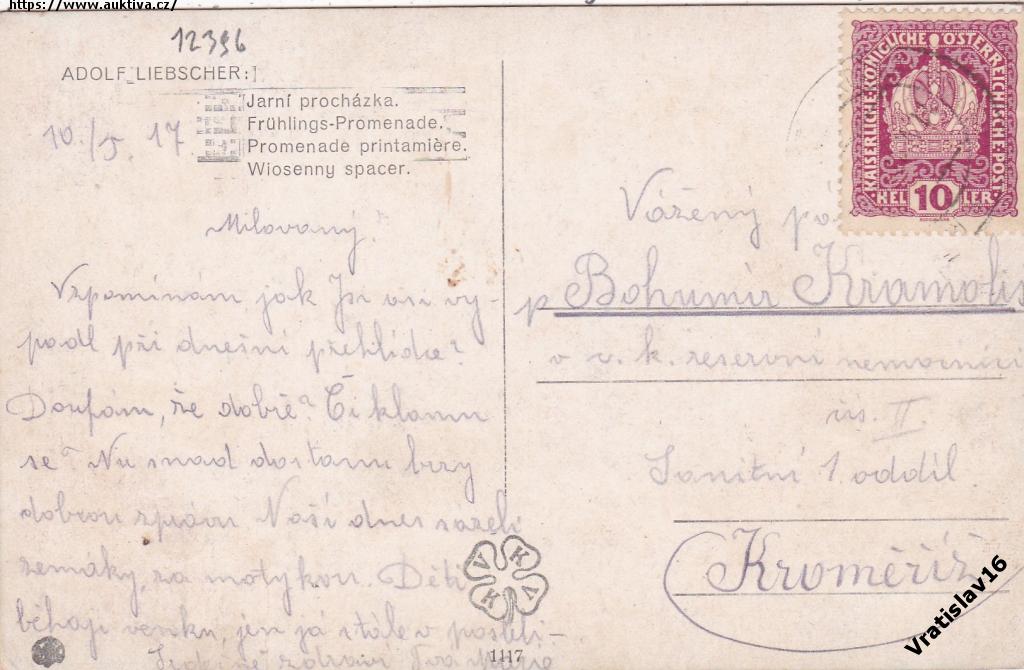 https://www.auktiva.cz/
12396
ADOLF LIEBSCHER:
Jarní procházka.
Frühlings-Promenade.
Promenade printamière.
Wiosenny spacer.
10./5. 17
Milovaný!
Vzpomínám jak Jsi asi vy-
padl při dnešní přehlídce?
Doufám, že dobře? Či klamu
se? Nu snad dostanu brzy
dobrou zprávu. Naši dnes sázeli
zemáky, za motykou. Děti
běhají venku, jen já stále v posteli-
Srdečně zdraví Tva Marie
KAISERLICHE KÖNIGLICHE ÖSTERREICHISCHE POST
HELLER
10
Vážený
p Bohumír Kramoliš
v c. k. reservní nemocnici
čís. II.
Sanitní 1 oddíl
Kroměříž
V K V K
1117
Vratislav16